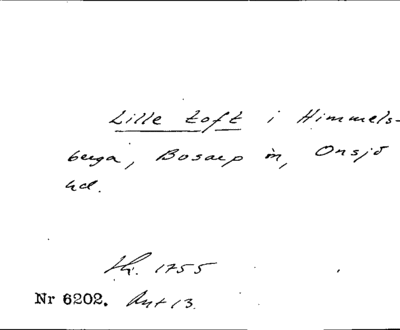 Lille toft i Himmels-
berga, Bosarp sn, Onsjö
hd.
Hr. 1755
Nr 6202. Ant 13.